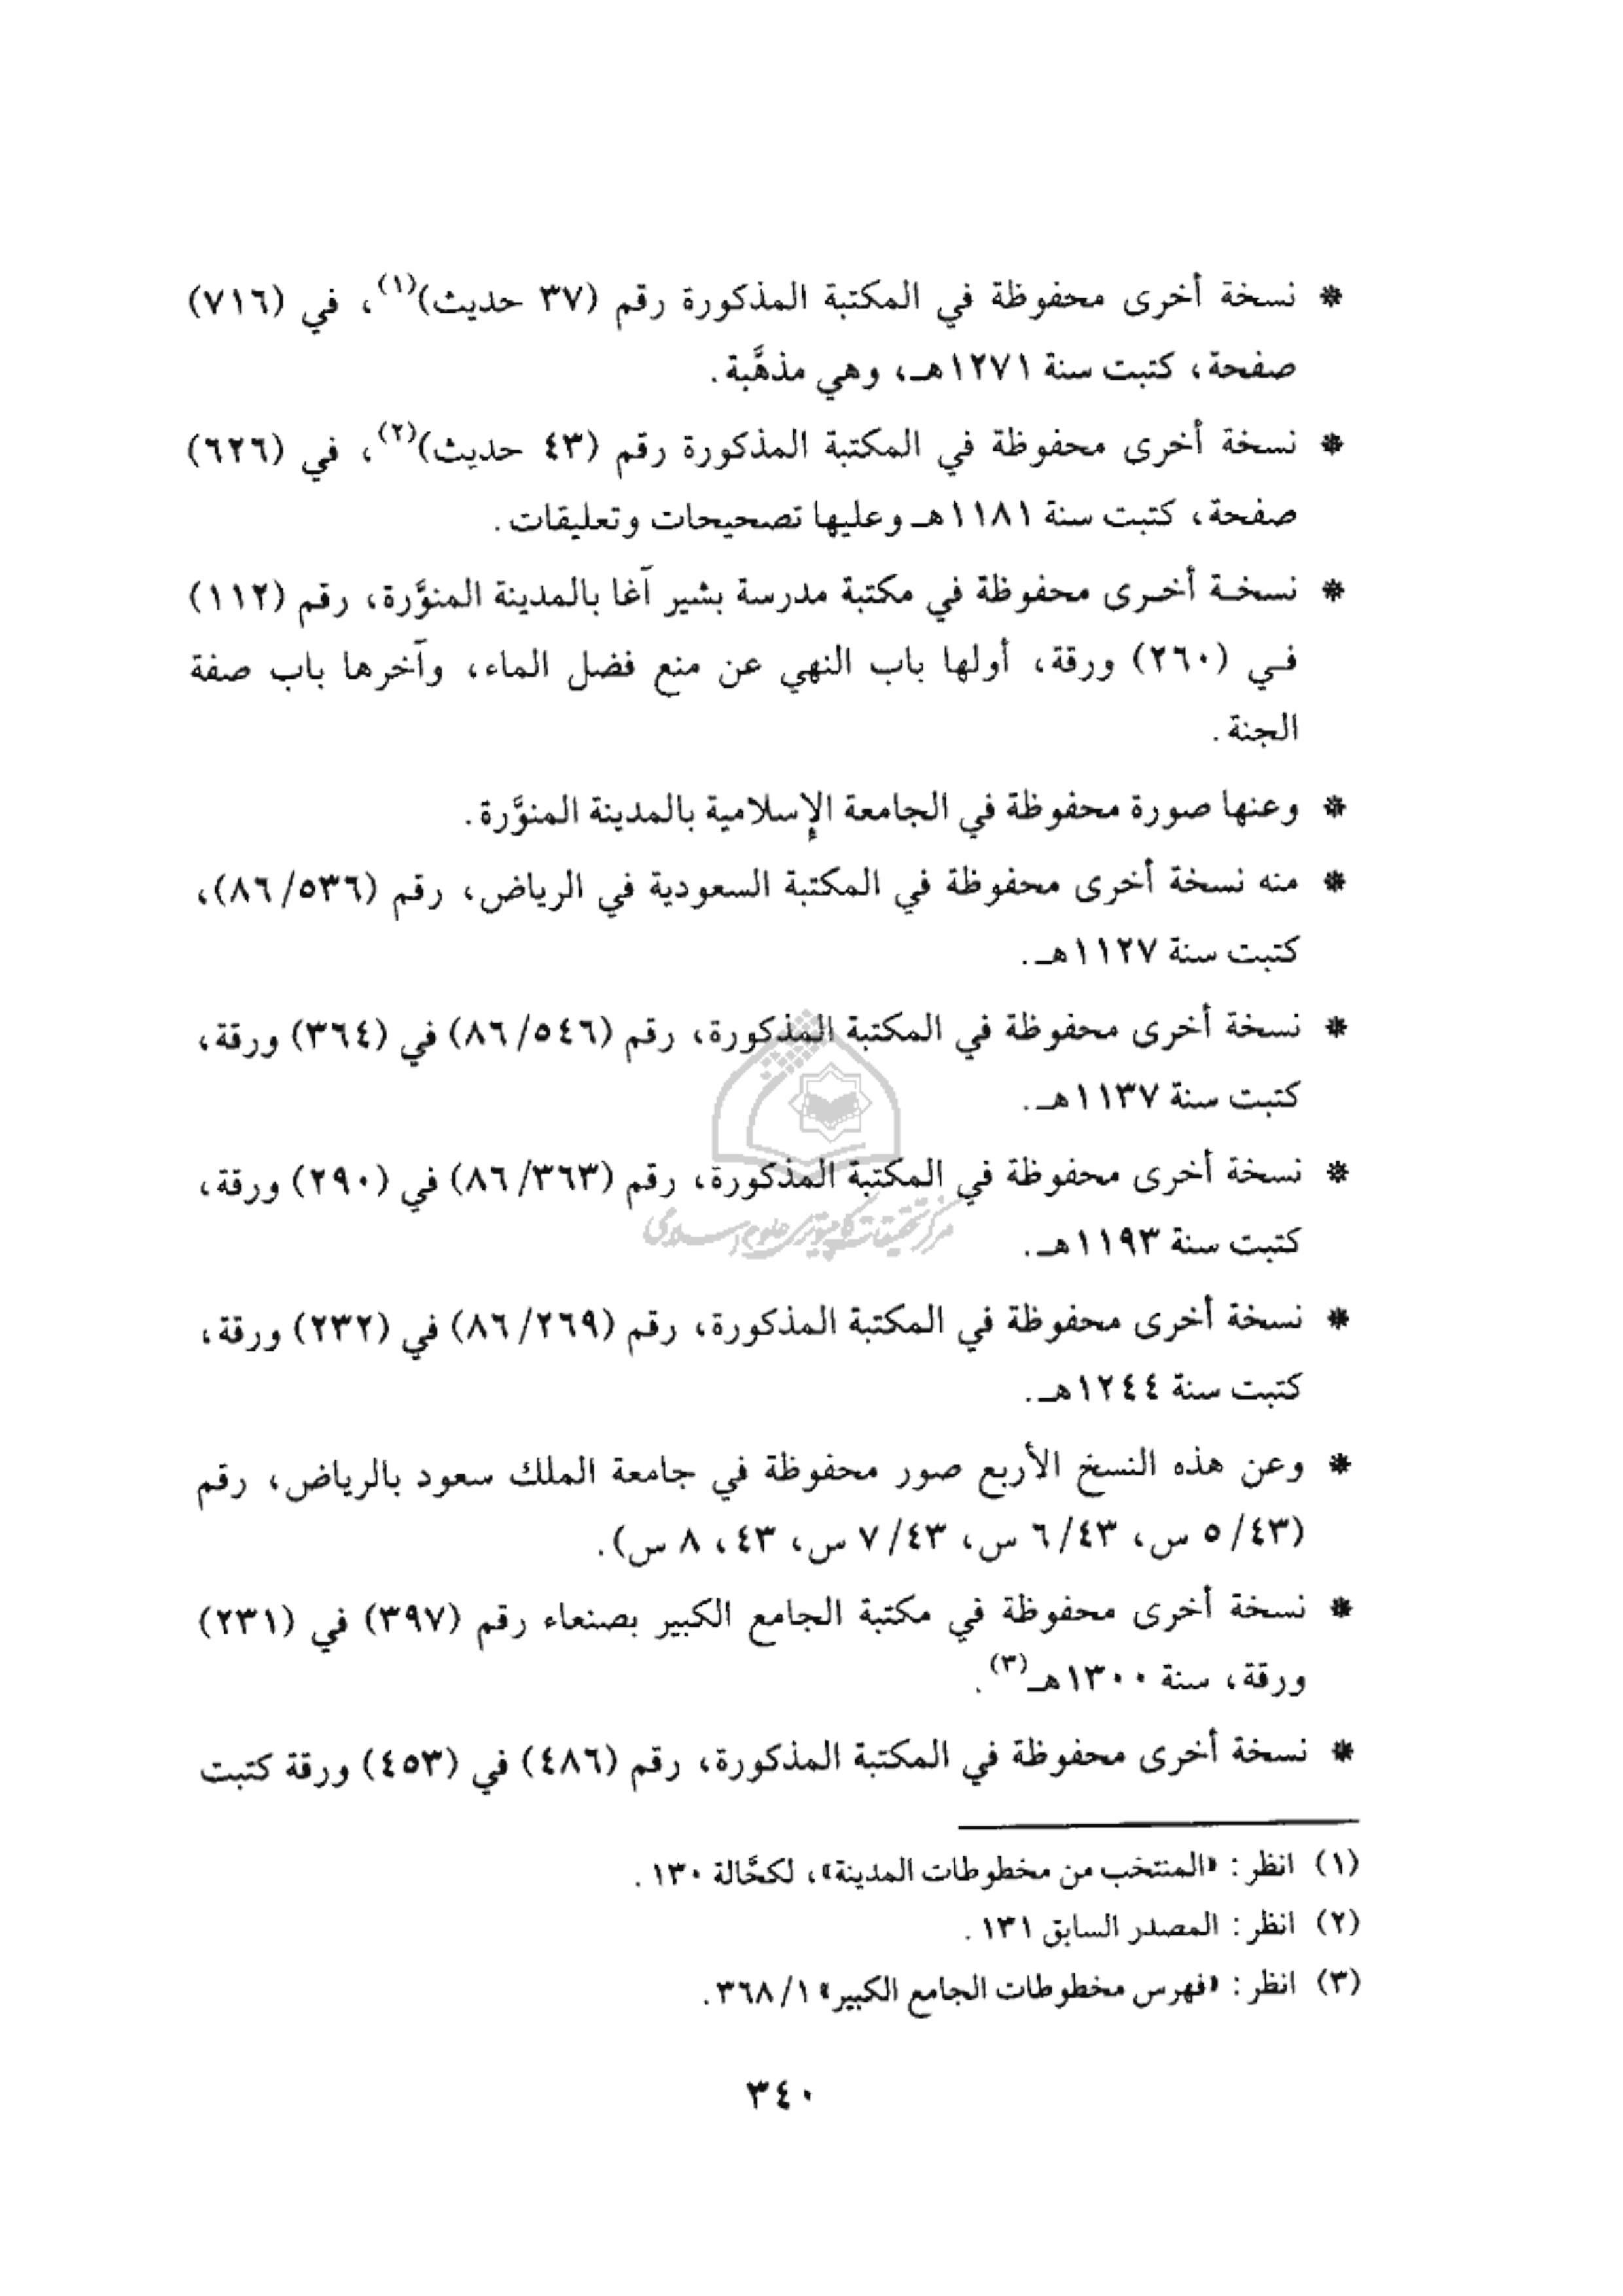 * نسخة أخرى محفوظة في المكتبة المذكورة رقم (٣٧ حديث)(١)، في (٧١٦)
صفحة، كتبت سنة ١٢٧١هـ، وهي مذهَّبة.
* نسخة أخرى محفوظة في المكتبة المذكورة رقم (٤٣ حديث)(٢)، في (٦٢٦)
صفحة، كتبت سنة ١١٨١هـ وعليها تصحيحات وتعليقات.
* نسخـة أخـرى محفوظة في مكتبة مدرسة بشير آغا بالمدينة المنوَّرة، رقم (١١٢)
فـي (٢٦٠) ورقة، أولها باب النهي عن منع فضل الماء، وآخرها باب صفة
الجنة.
* وعنها صورة محفوظة في الجامعة الإسلامية بالمدينة المنوَّرة.
* منه نسخة أخرى محفوظة في المكتبة السعودية في الرياض، رقم (٨٦/٥٣٦)،
كتبت سنة ١١٢٧هـ.
* نسخة أخرى محفوظة في المكتبة المذكورة، رقم (٨٦/٥٤٦) في (٣٦٤) ورقة،
كتبت سنة ١١٣٧هـ.
* نسخة أخرى محفوظة في المكتبة المذكورة، رقم (٨٦/٣٦٣) في (٢٩٠) ورقة،
مركز تحقيقات كامپيوترى علوم اسلامى
كتبت سنة ١١٩٣هـ.
* نسخة أخرى محفوظة في المكتبة المذكورة، رقم (٨٦/٢٦٩) في (٢٣٢) ورقة،
كتبت سنة ١٢٤٤هـ.
* وعن هذه النسخ الأربع صور محفوظة في جامعة الملك سعود بالرياض، رقم
(٥/٤٣ س، ٦/٤٣ س، ٧/٤٣ س، ٤٣، ٨ س).
* نسخة أخرى محفوظة في مكتبة الجامع الكبير بصنعاء رقم (٣٩٧) في (٢٣١)
ورقة، سنة ١٣٠٠هـ(٣).
* نسخة أخرى محفوظة في المكتبة المذكورة، رقم (٤٨٦) في (٤٥٣) ورقة كتبت
(١) انظر: «المنتخب من مخطوطات المدينة»، لكحَّالة ١٣٠.
(٢) انظر: المصدر السابق ١٣١.
(٣) انظر: «فهرس مخطوطات الجامع الكبير» ٣٦٨/١.
٣٤٠